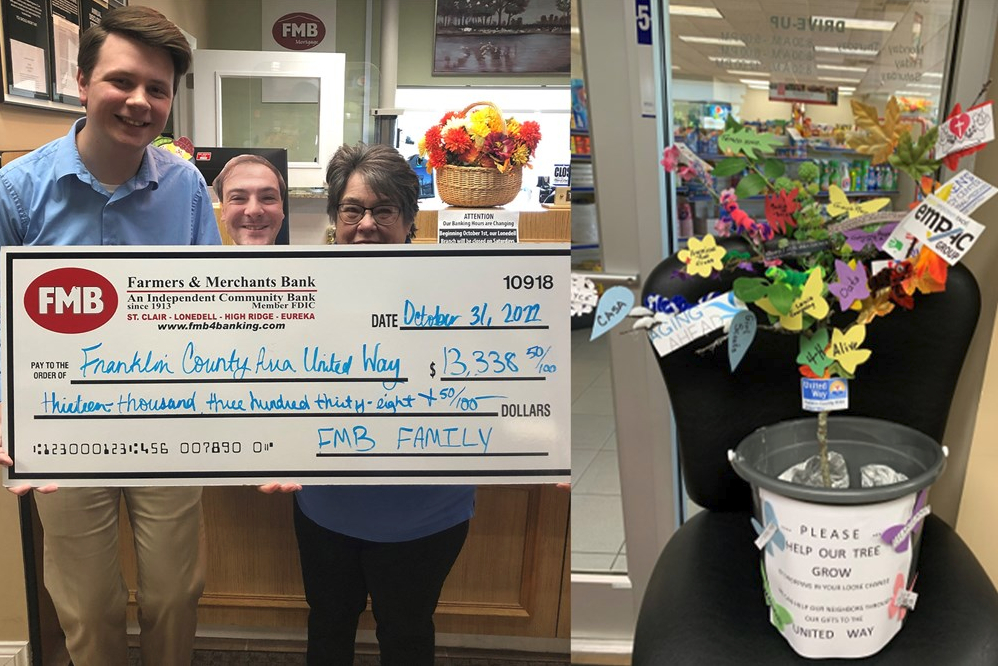 FMB
FMB
Farmers & Merchants Bank
An Independent Community Bank
since 1913 Member FDIC
ST. CLAIR - LONEDELL - HIGH RIDGE - EUREKA
www.fmb4banking.com
10918
DATE October 31, 2022
PAY TO THE
ORDER OF Franklin County Area United Way $ 13,338 50/100
thirteen thousand three hundred thirty-eight + 50/100 DOLLARS
FMB FAMILY
ATTENTION
Our Banking Hours are Changing
Beginning October 1st, our Lonedell
Branch will be closed on Saturdays
5
DRIVE-UP
Monday
Friday
Saturday
emPAC
GROUP
CASA
AGING AHEAD
Girl
Scouts
4-H
Alive
United
Way
PLEASE
HELP OUR TREE
GROW
BY DROPPING IN YOUR LOOSE CHANGE
HELP OUR NEIGHBORS THROUGH
OUR GIFTS TO THE
UNITED WAY